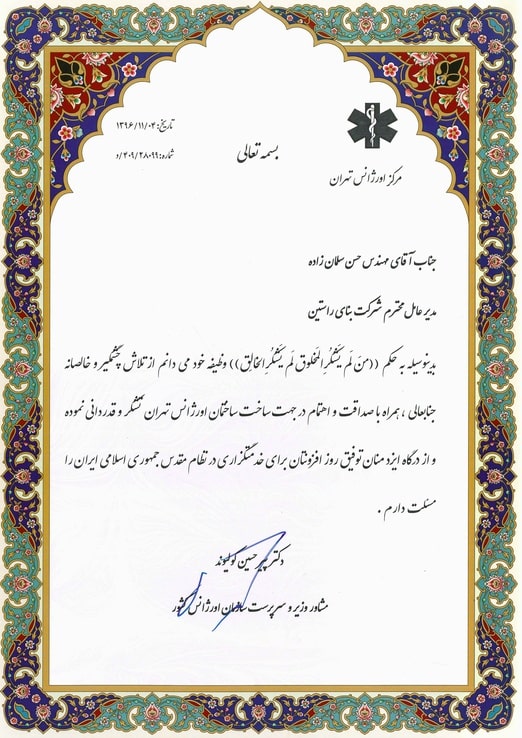 تاریخ: ۱۳۹۶/۱۱/۰۴
شماره: ۴۰۹/۲۸۰۹۹/د
بسمه تعالی
مرکز اورژانس تهران
جناب آقای مهندس حسن سلمان زاده
مدیر عامل محترم شرکت بنای راستین
بدینوسیله به حکم ((منَ لَم یَشْکُرِ المَخلوق لَم یَشْکُرِ الخالِق)) وظیفه خود می دانم از تلاش چشمگیر و خالصانه
جنابعالی ، همراه با صداقت و اهتمام در جهت ساخت ساختمان اورژانس تهران تشکر و قدردانی نموده
و از درگاه ایزد منان توفیق روز افزونتان برای خدمتگزاری در نظام مقدس جمهوری اسلامی ایران را
مسئلت دارم .
دکتر پیر حسین کولیوند
مشاور وزیر و سرپرست سازمان اورژانس کشور